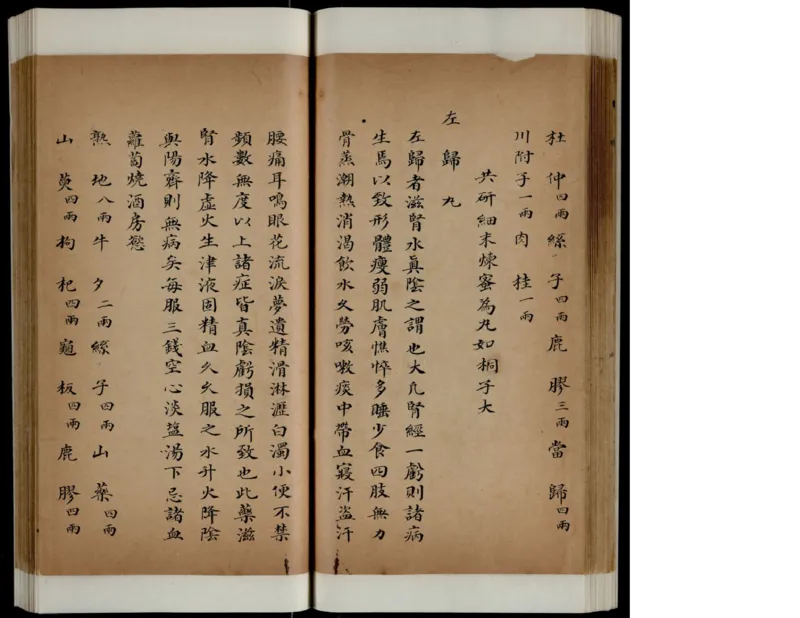 杜仲四兩絲子四兩鹿膠三兩當歸四兩
川附子一兩肉桂一兩
共研細末煉蜜為丸如桐子大
左歸丸
左歸者滋腎水真陰之謂也大凡腎經一虧則諸病
生焉以致形體瘦弱肌膚憔悴多睡少食四肢無力
骨蒸潮熱消渴飲水久勞咳嗽痰中帶血寢汗盜汗
腰痛耳鳴眼花流淚夢遺精滑淋瀝白濁小便不禁
頻數無度以上諸症皆真陰虧損之所致也此藥滋
腎水降虛火生津液固精血久久服之水升火降陰
與陽齊則無病矣每服三錢空心淡塩湯下忌諸血
蘿蔔燒酒房慾
熟地八兩牛夕二兩絲子四兩山藥四兩
山萸四兩枸杞四兩龜板四兩鹿膠四兩